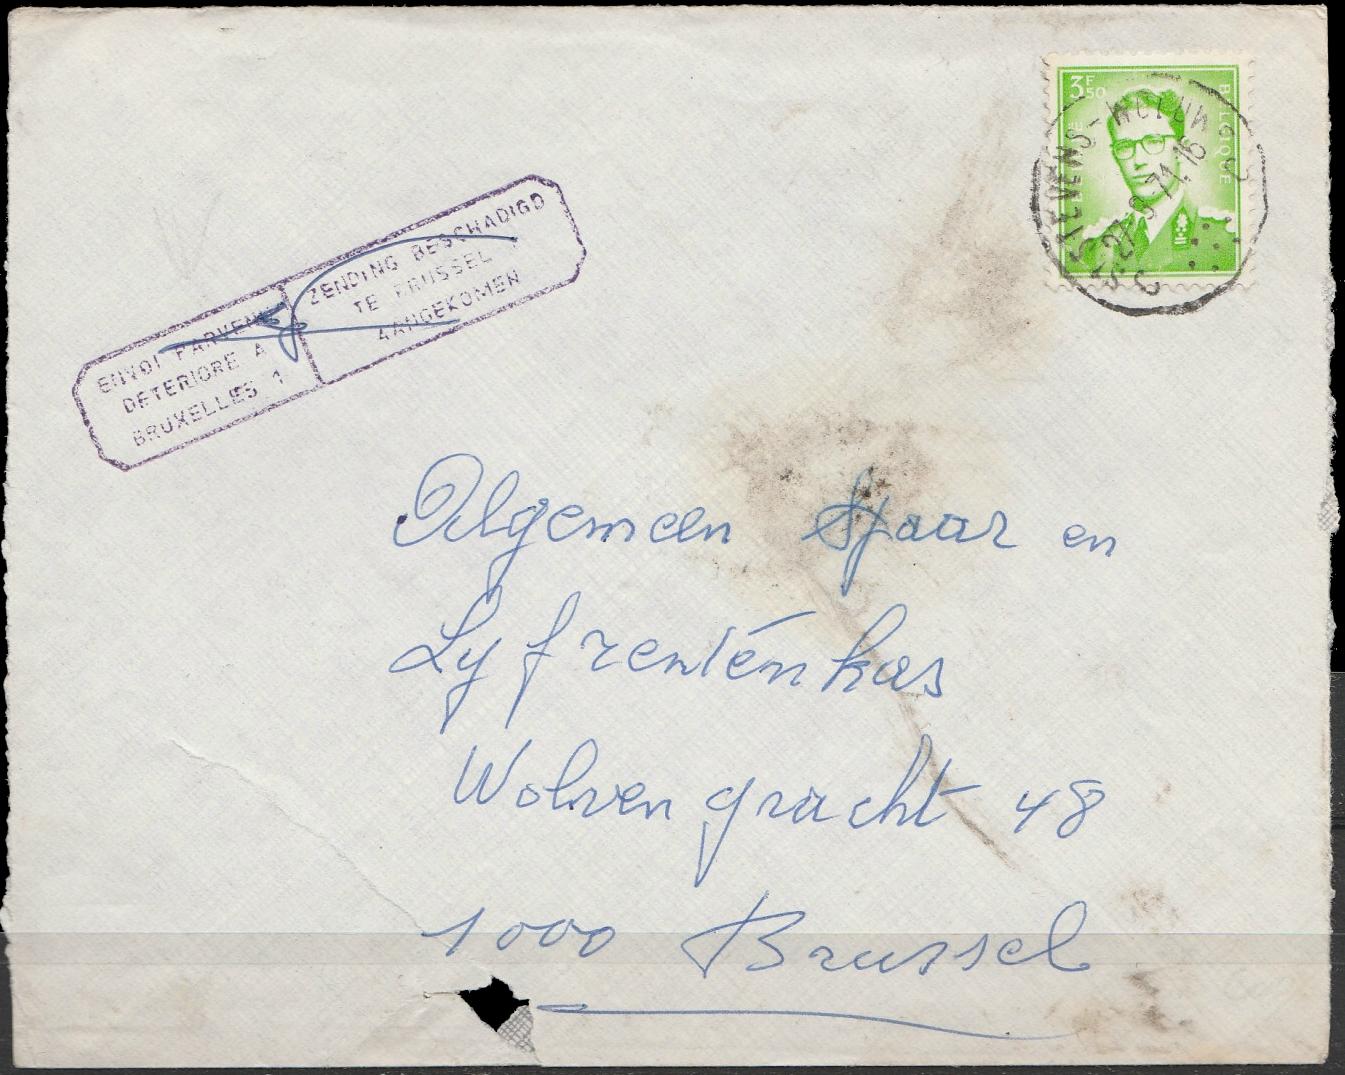 3F50
BELGIQUE
S. STEVENS-WOLUWE
27-9-71.16
ENVOI PARVENU
DETERIORE A
BRUXELLES 1
ZENDING BESCHADIGD
TE BRUSSEL
AANGEKOMEN
Algemeen Spaar en
Lyfrentenkas
Wolvengracht 48
1000 Brussel